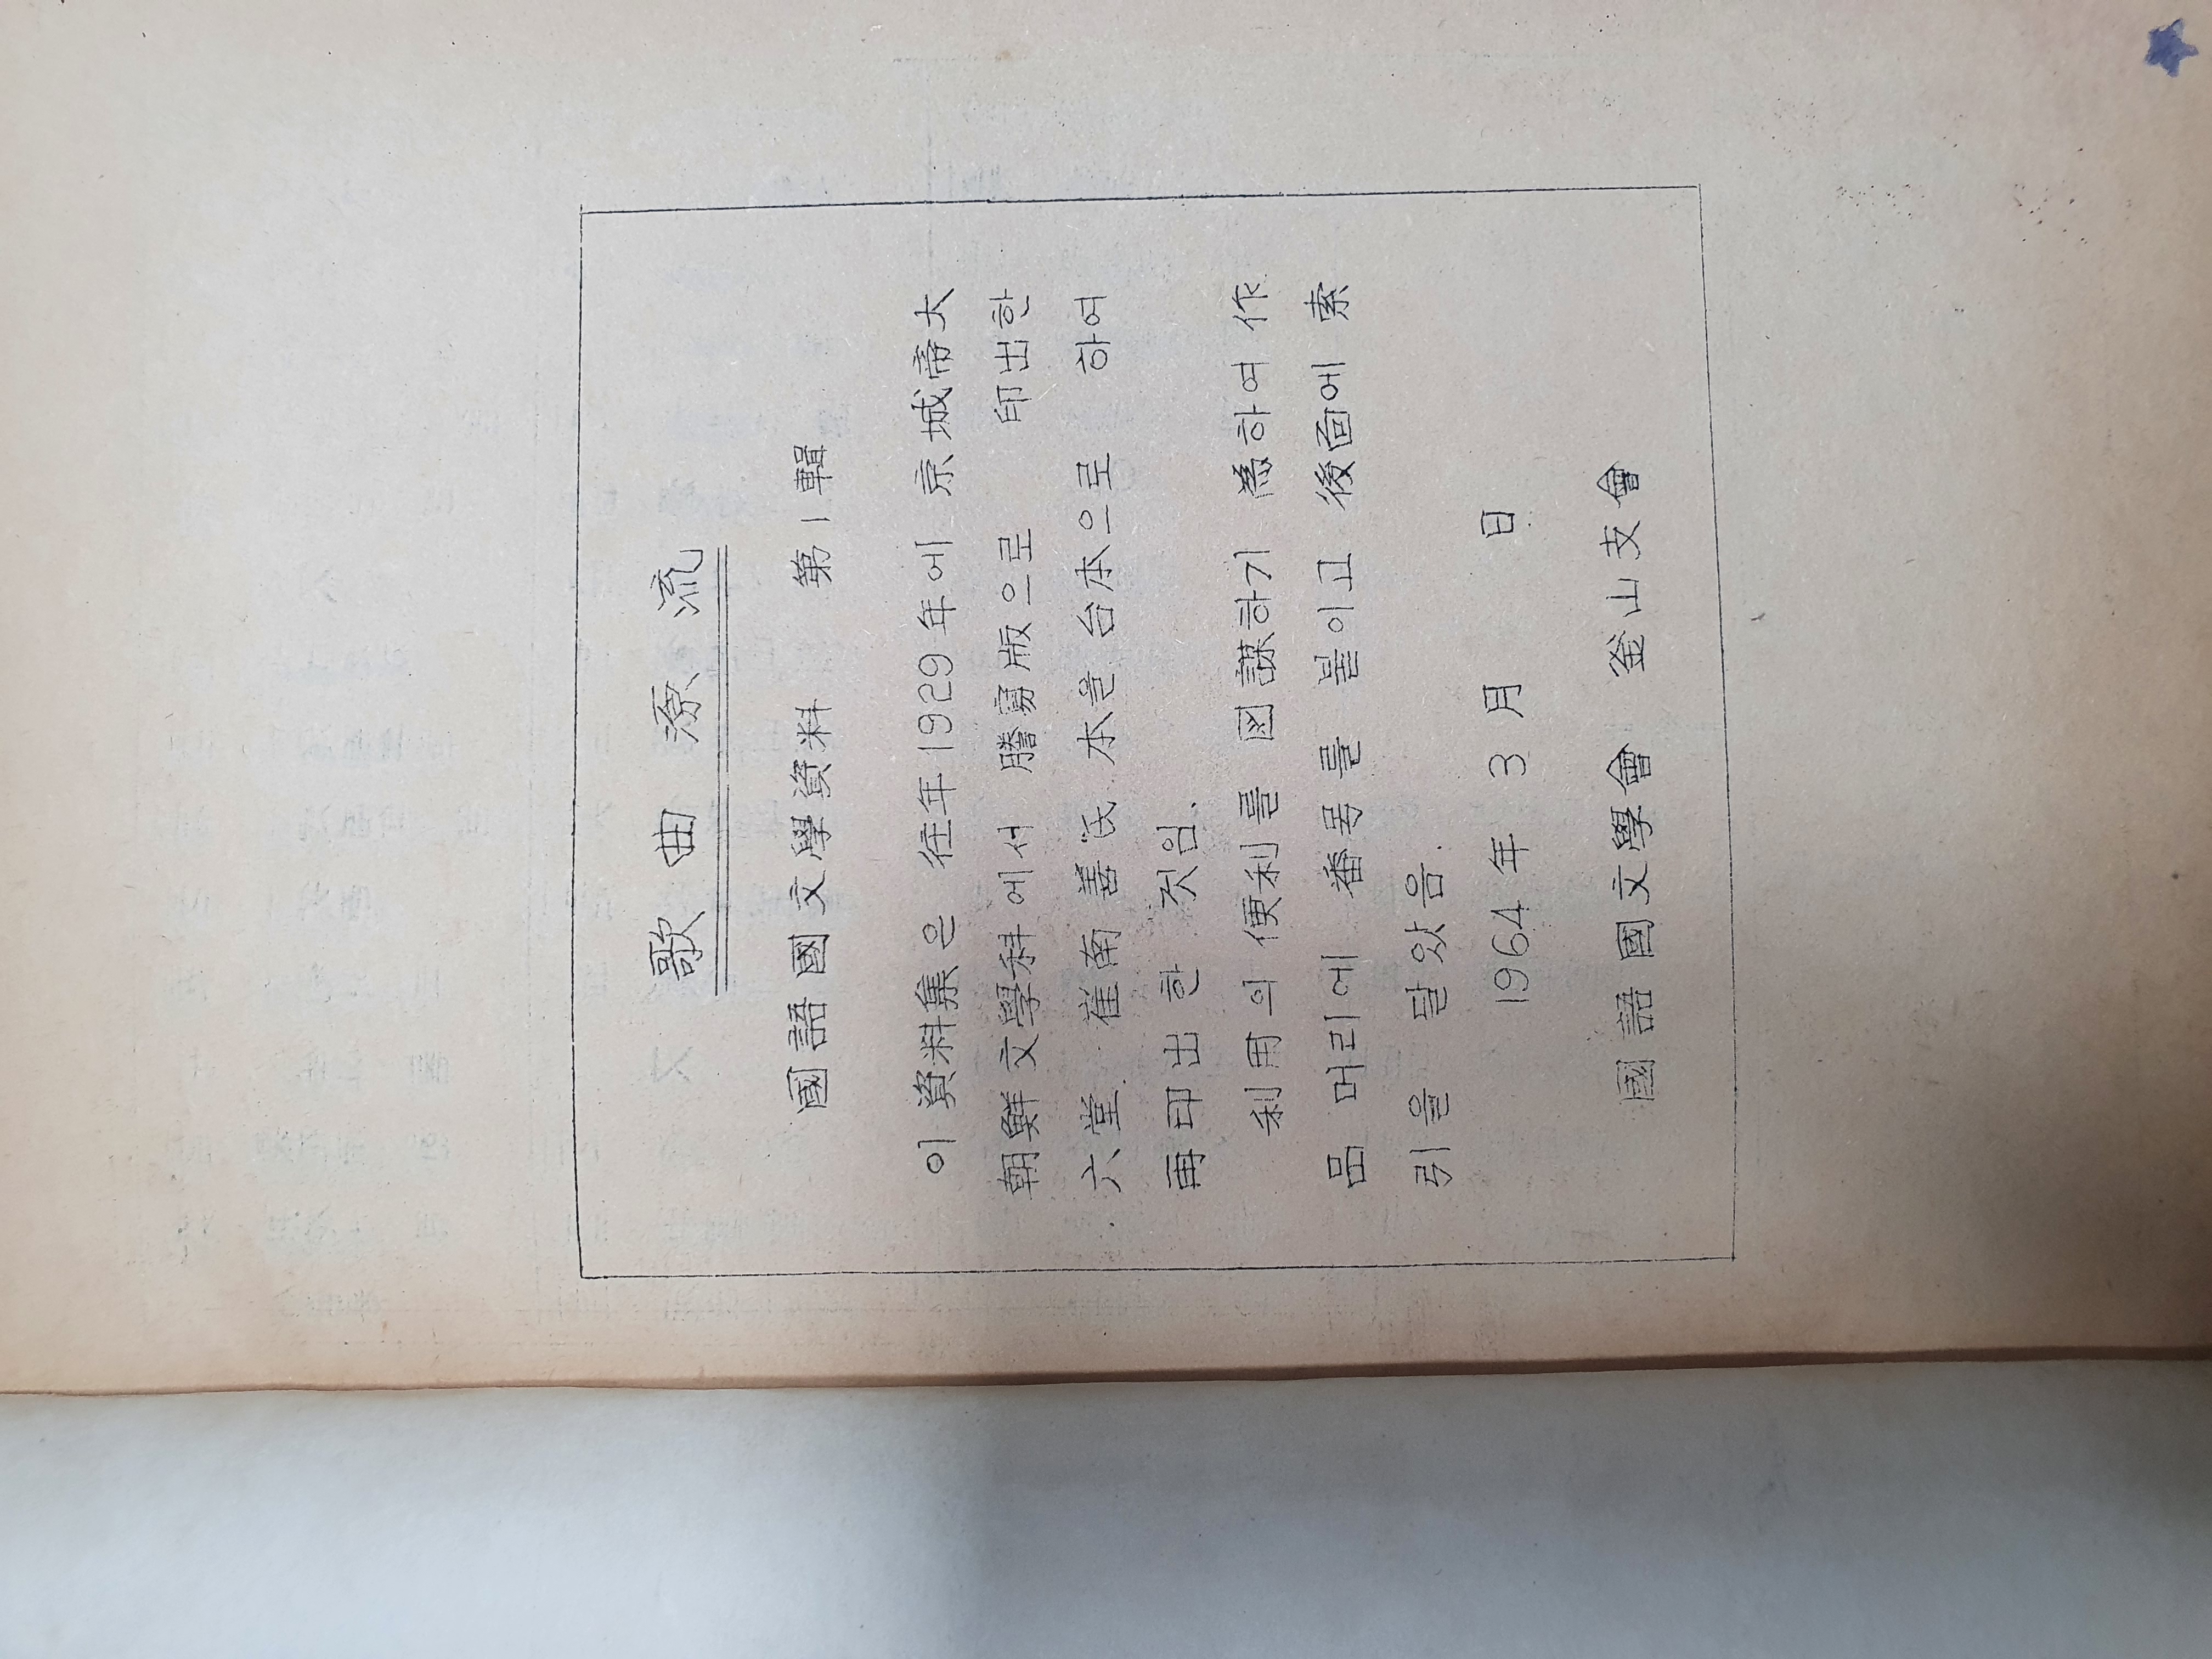 歌曲源流
國語國文學資料 第1輯
이 資料集은 往年 1929年에 京城帝大
朝鮮文學科에서 謄寫版으로 印出한
六堂 崔南善氏 本을 台本으로 하여
再印出한 것임.
利用의 便利를 図謀하기 爲하여 作
品 머리에 番号를 붙이고 後面에 索
引을 달았음.
1964年 3月 日
國語國文學會 釜山支會